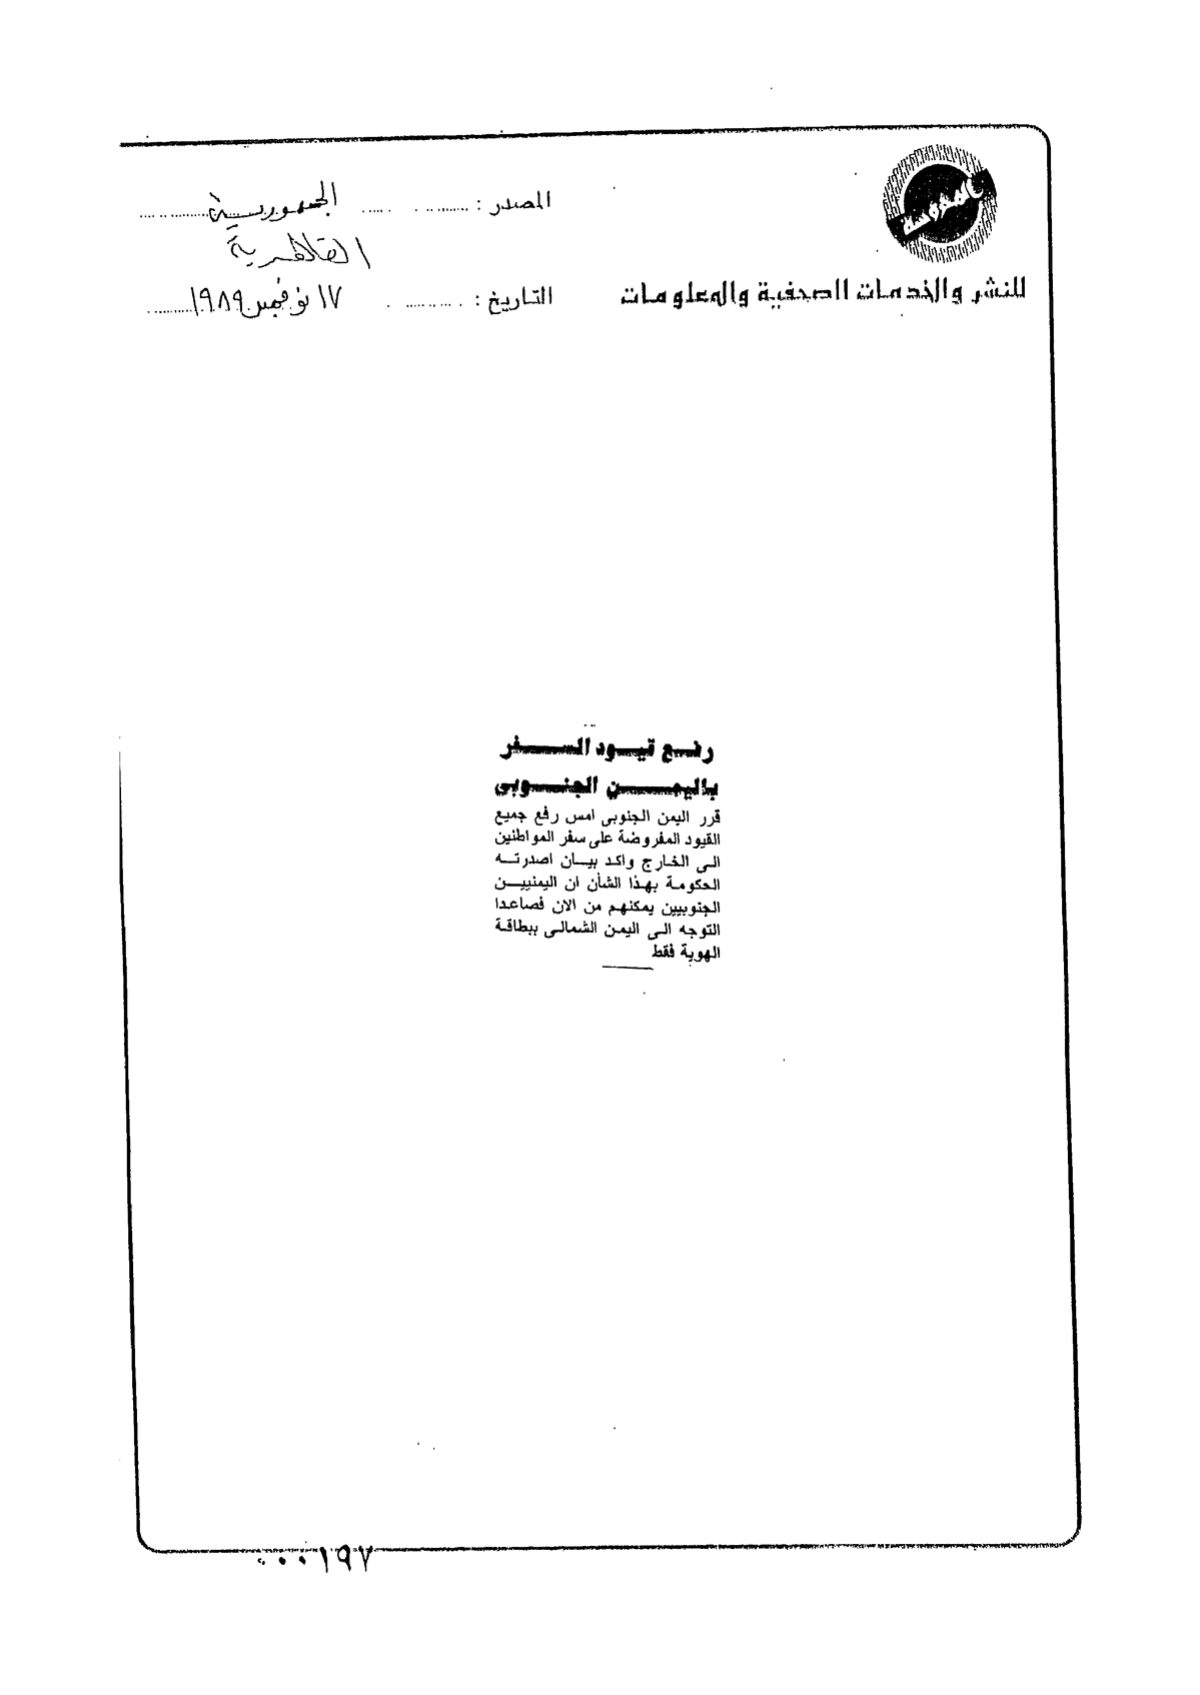 المصدر : الجمهورية
القاهرية
للنشر والخدمات الصحفية والمعلومات
التاريخ : ١٧ نوفمبر ١٩٨٩
رفع قيود السفر
باليمن الجنوبى
قرر اليمن الجنوبى امس رفع جميع
القيود المفروضة على سفر المواطنين
الى الخارج واكد بيان اصدرته
الحكومة بهذا الشأن ان اليمنيين
الجنوبيين يمكنهم من الان فصاعدا
التوجه الى اليمن الشمالى ببطاقة
الهوية فقط
٠٠٠١٩٧